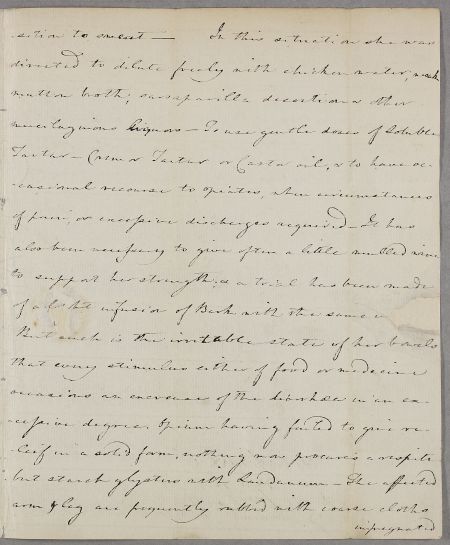 -sition to sweat — In this situation she was
directed to dilute freely with chicken water, weak
mutton broth, sarsaparilla decoction & other
mucilaginous liquors — To use gentle doses of Soluble
Tartar — Cremor Tartar or Castor oil, & to have oc-
-casional recourse to opiates, when circumstances
of pain, or excessive discharges required — It has
also been necessary to give often a little mulled wine
to support her strength, & a trial has been made
of a light infusion of Bark with the same
But such is the irritable state of her bowels
that every stimulus either of food or medicine
occasions an encrease of the diarrhœa in an ex-
-cessive degree. Opium having failed to give re-
-lief in a solid form, nothing now procures a respite
but starch glysters with Laudanum — The affected
arm & leg are frequently rubbed with coarse cloths
impregnated